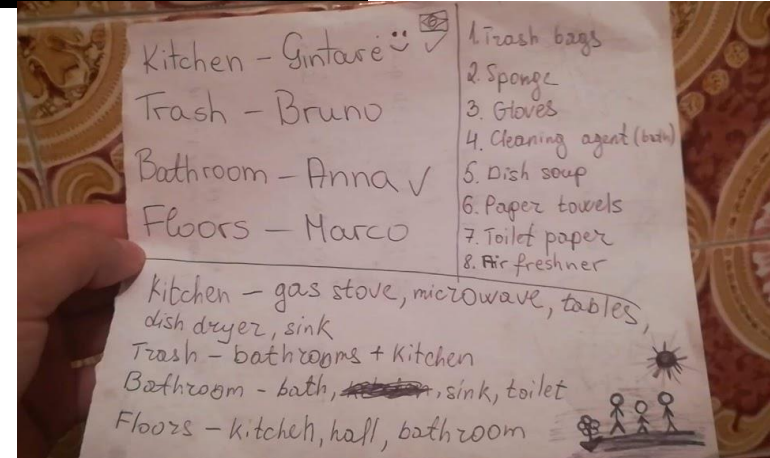 Kitchen - Gintarė
Trash - Bruno
Bathroom - Anna ✓
Floors - Marco
1. Trash bags
2. Sponge
3. Gloves
4. Cleaning agent (bath)
5. Dish soup
6. Paper towels
7. Toilet paper
8. Air freshner
Kitchen - gas stove, microwave, tables,
dish dryer, sink
Trash - bathrooms + kitchen
Bathroom - bath, , sink, toilet
Floors - kitchen, hall, bathroom